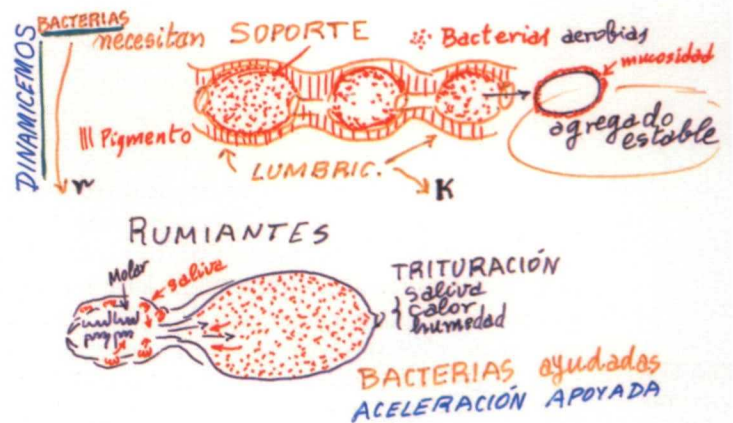 DINAMICEMOS
BACTERIAS
necesitan SOPORTE
Bacterias aerobias
mucosidad
agregado
estable
III Pigmento
LUMBRIC.
r
K
RUMIANTES
Molar
saliva
TRITURACIÓN
saliva
calor
humedad
BACTERIAS ayudadas
ACELERACIÓN APOYADA